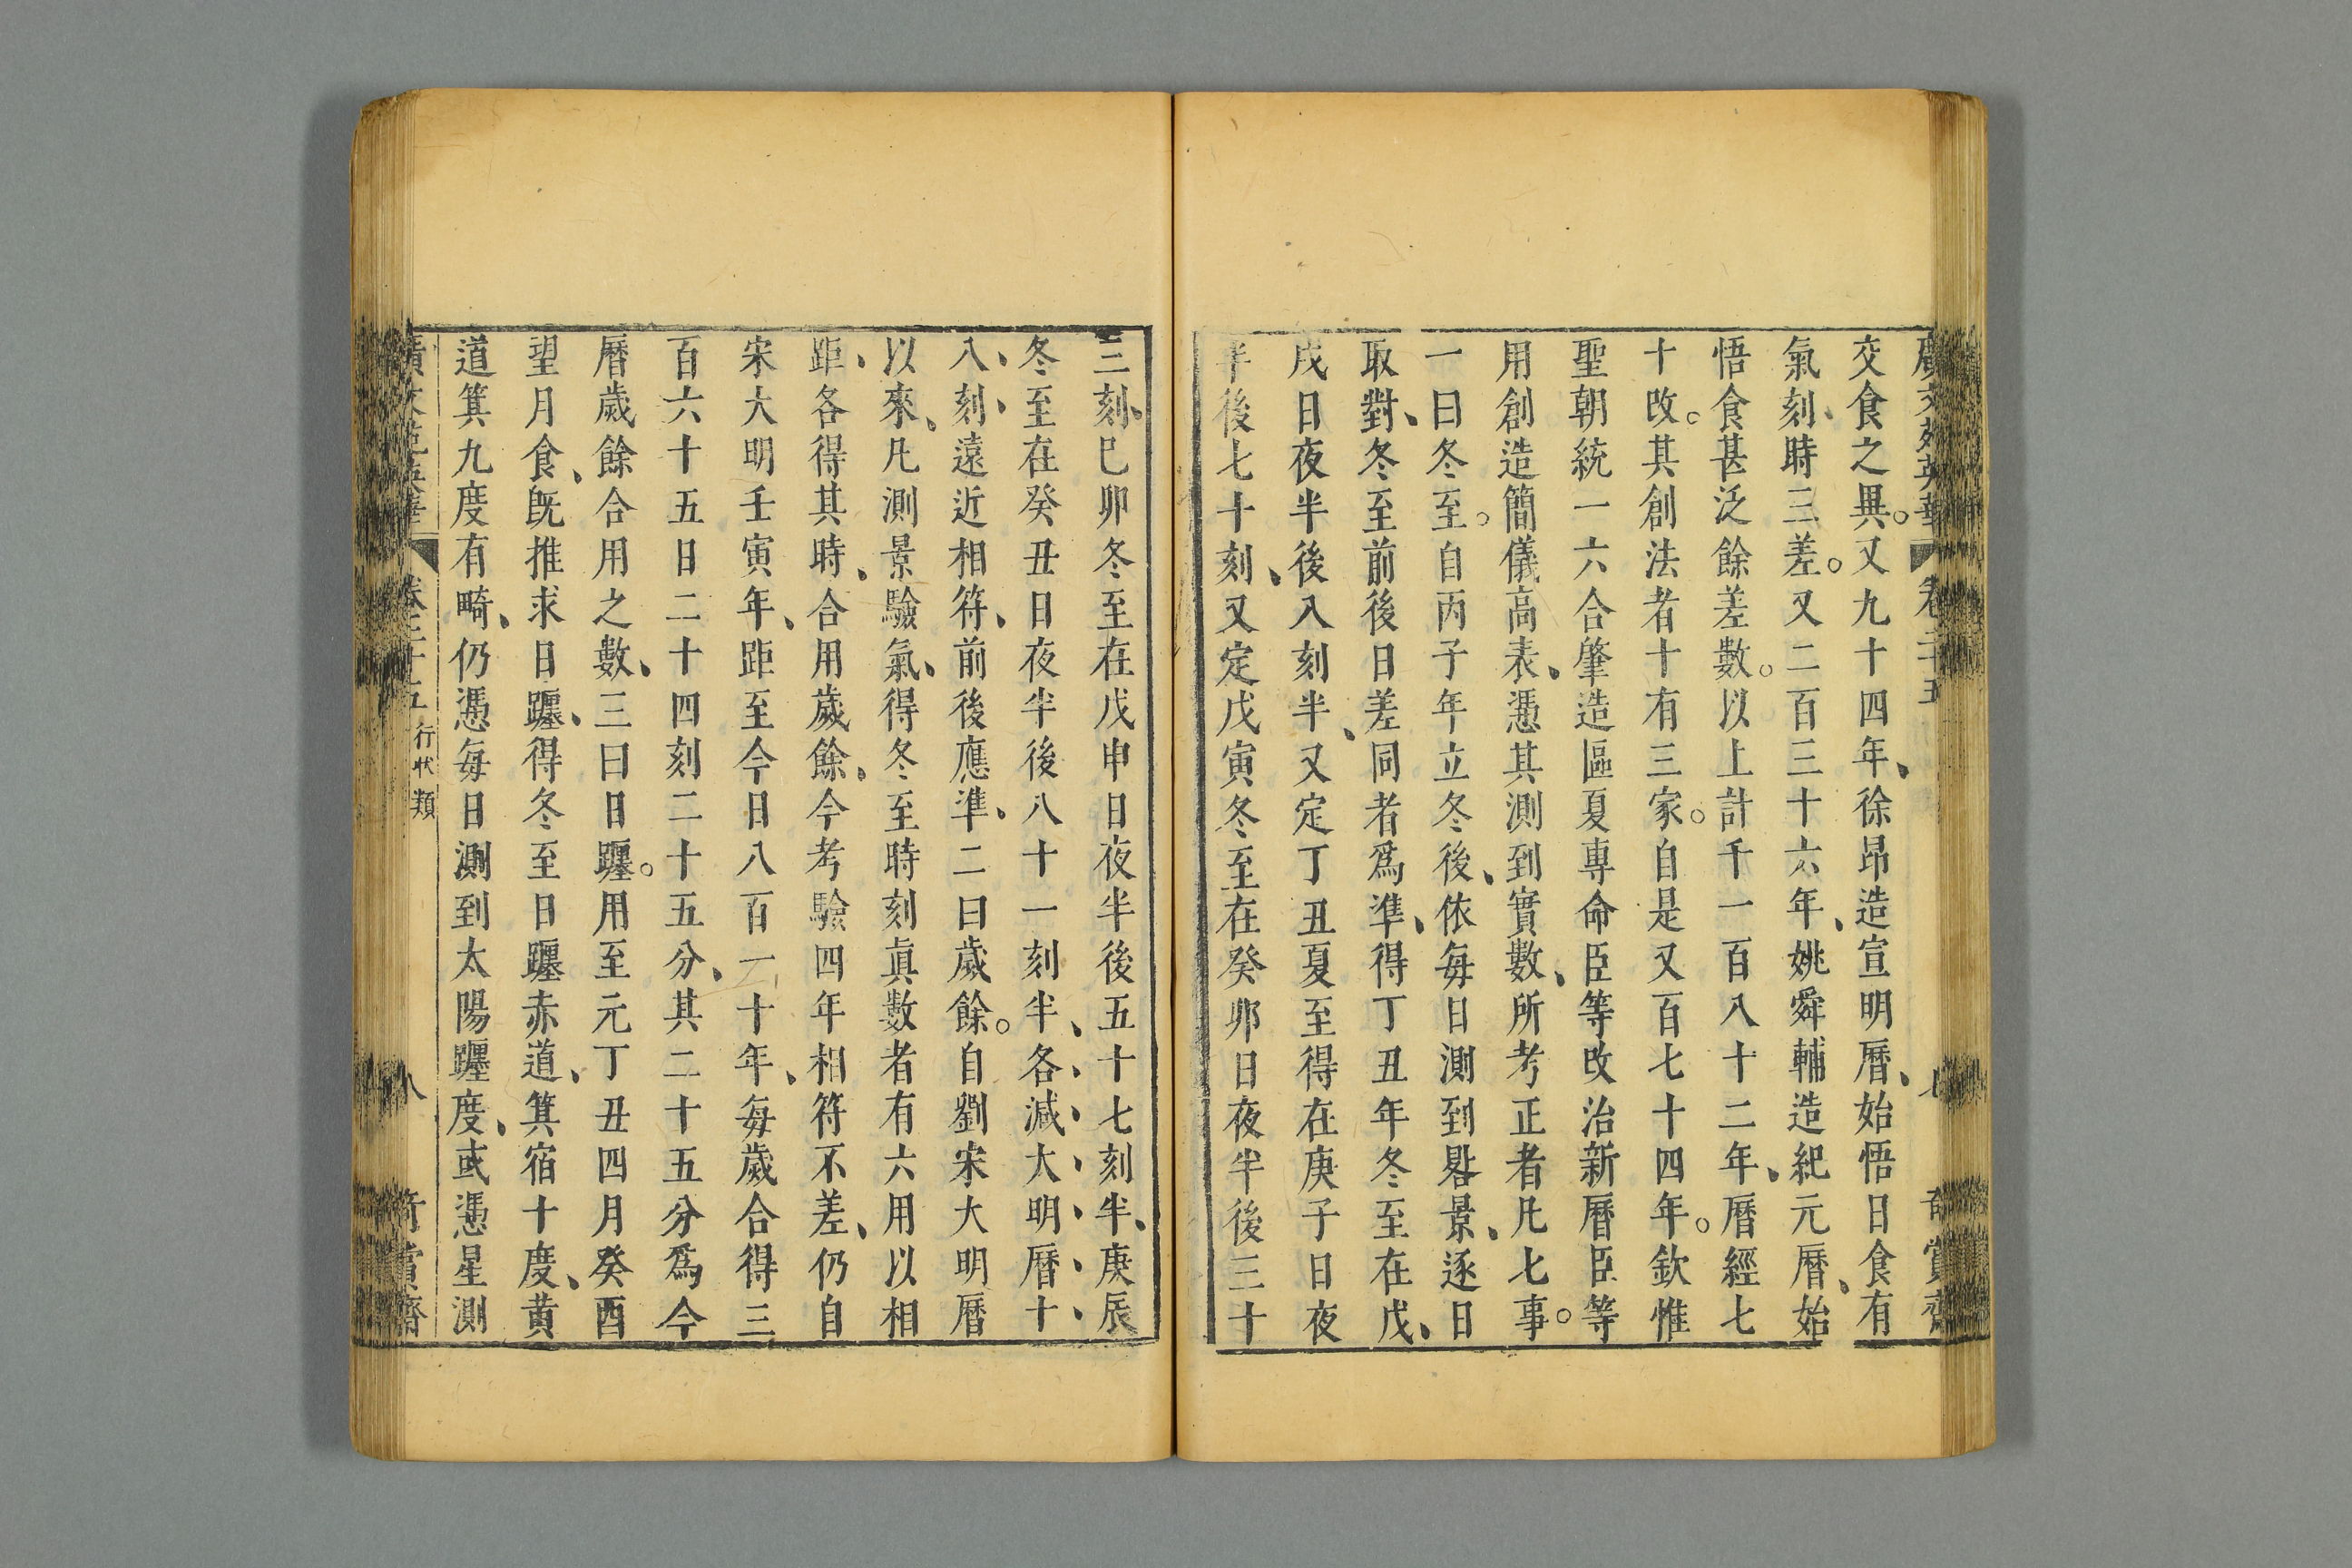 廣文苑英華 卷二十五 七 奇賞齋
交食之異。又九十四年、徐昂造宣明曆、始悟日食有
氣刻、時三差。又二百三十六年、姚舜輔造紀元曆、始
悟食甚泛餘差數。以上計千一百八十二年、曆經七
十改。其創法者十有三家。自是又百七十四年。欽惟
聖朝統一六合肇造區夏專命臣等改治新曆臣等
用創造簡儀高表、憑其測到實數、所考正者凡七事。
一曰冬至。自丙子年立冬後、依每日測到晷景、逐日
取對、冬至前後日差同者爲準、得丁丑年冬至在戊、
戌日夜半後八刻半、又定丁丑夏至得在庚子日夜
半後七十刻、又定戊寅冬至在癸卯日夜半後三十
三刻、已卯冬至在戊申日夜半後五十七刻半、庚辰
冬至在癸丑日夜半後八十一刻半、各、減、大、明、曆、十、
八、刻、遠近相符、前後應準、二曰歲餘。自劉宋大明曆
以來、凡測景驗氣、得冬至時刻真數者有六用以相
距、各得其時、合用歲餘、今考驗四年相符不差、仍自
宋大明壬寅年、距至今日八百一十年、每歲合得三
百六十五日二十四刻二十五分、其二十五分爲今
曆歲餘合用之數、三曰日躔。用至元丁丑四月癸酉
望月食、既推求日躔、得冬至日躔赤道、箕宿十度、黃
道箕九度有畸、仍憑每日測到太陽躔度、或憑星測
廣文苑英華 卷二十五 行狀類 八 奇賞齋